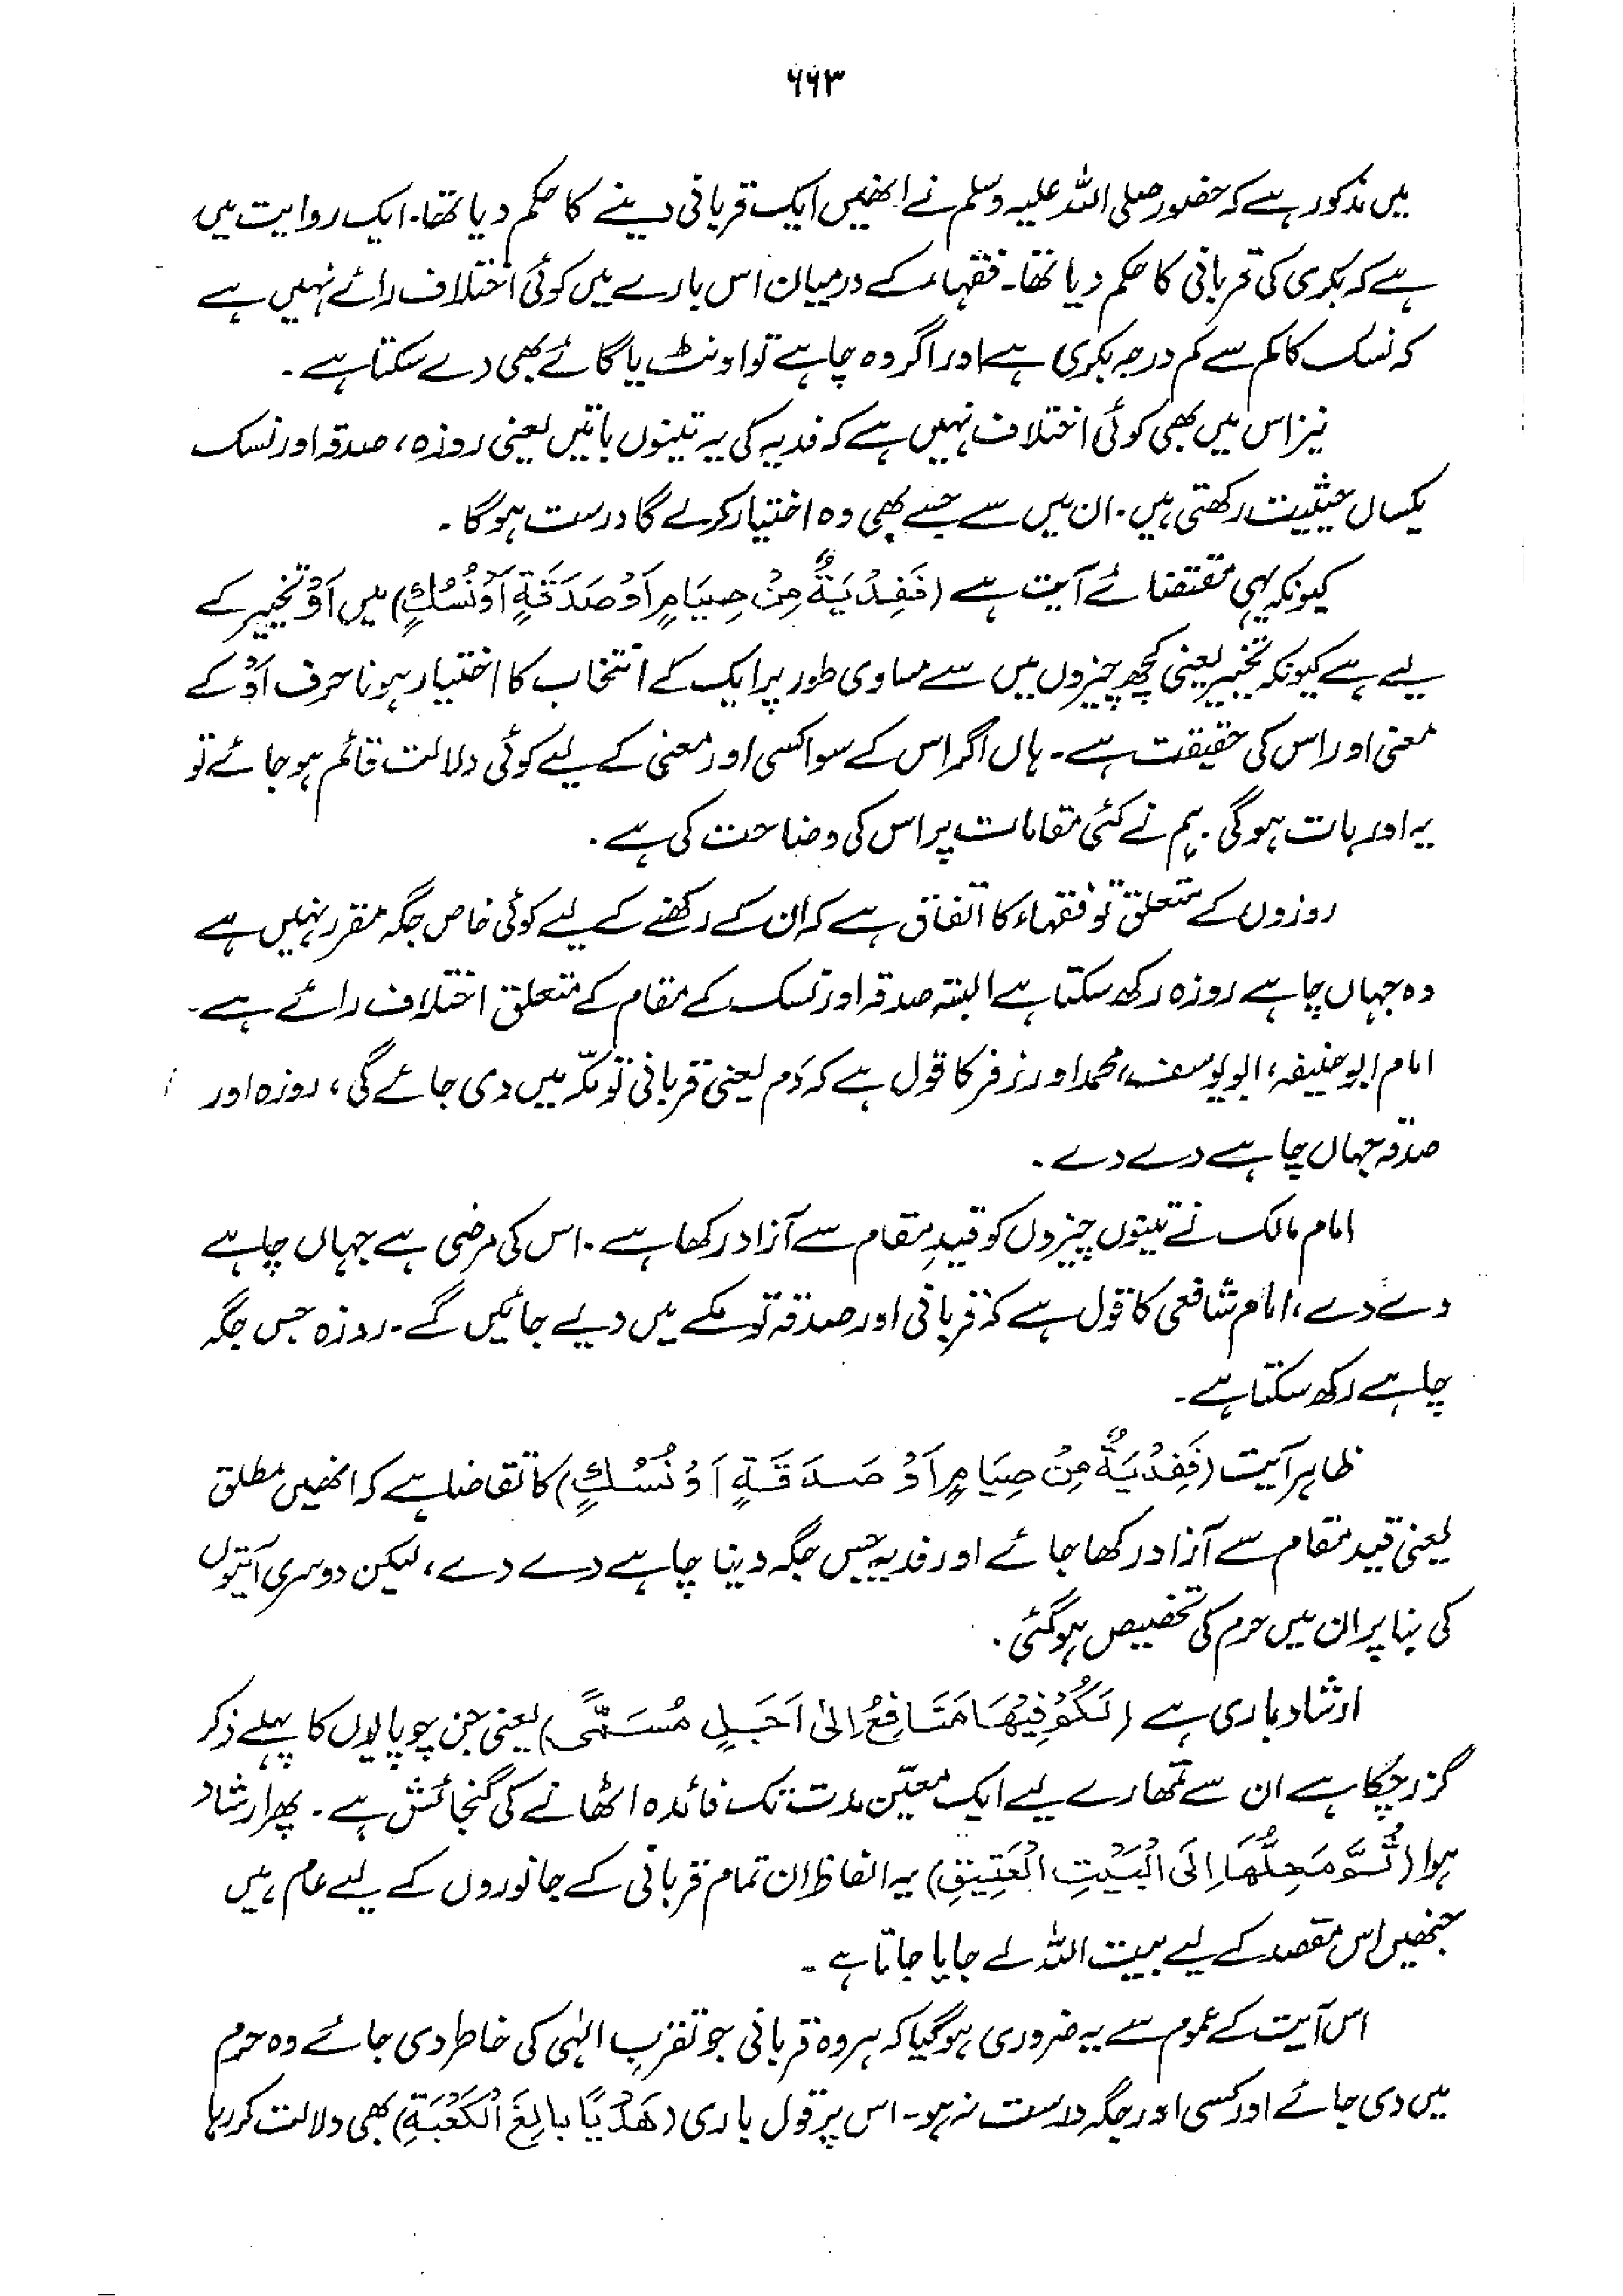 ۶۶۳
میں مذکور ہے کہ حضور صلی اللہ علیہ وسلم نے انھیں ایک قربانی دینے کا حکم دیا تھا۔ ایک روایت میں
ہے کہ بکری کی قربانی کا حکم دیا تھا۔ فقہاء کے درمیان اس بارے میں کوئی اختلاف رائے نہیں ہے
کہ نسک کا کم سے کم درجہ بکری ہے اور اگر وہ چاہے تو اونٹ یا گائے بھی دے سکتا ہے۔
نیز اس میں بھی کوئی اختلاف نہیں ہے کہ فدیہ کی یہ تینوں باتیں یعنی روزہ، صدقہ اور نسک
یکساں حیثیت رکھتی ہیں۔ ان میں سے جسے بھی وہ اختیار کرلے گا درست ہوگا۔
کیونکہ یہی مقتضائے آیت ہے (فَفِدْيَةٌ مِنْ صِيَامٍ اَوْ صَدَقَةٍ اَوْ نُسُكٍ) میں اَوْ تخییر کے
لیے ہے کیونکہ تخییر یعنی کچھ چیزوں میں سے مساوی طور پر ایک کے انتخاب کا اختیار ہونا حرف اَوْ کے
معنی اور اس کی حقیقت ہے۔ ہاں اگر اس کے سوا کسی اور معنی کے لیے کوئی دلالت قائم ہو جائے تو
یہ اور بات ہوگی۔ ہم نے کئی مقامات پر اس کی وضاحت کی ہے۔
روزوں کے متعلق تو فقہاء کا اتفاق ہے کہ ان کے رکھنے کے لیے کوئی خاص جگہ مقرر نہیں ہے
وہ جہاں چاہے روزہ رکھ سکتا ہے البتہ صدقہ اور نسک کے مقام کے متعلق اختلاف رائے ہے۔
امام ابوحنیفہ، ابویوسف، محمد اور زفر کا قول ہے کہ دَم یعنی قربانی تو مکّہ میں دی جائے گی، روزہ اور
صدقہ جہاں چاہے دے دے۔
امام مالک نے تینوں چیزوں کو قیدِ مقام سے آزاد رکھا ہے۔ اس کی مرضی ہے جہاں چاہے
دے دے، امام شافعی کا قول ہے کہ قربانی اور صدقہ تو مکے میں دیے جائیں گے۔ روزہ جس جگہ
چاہے رکھ سکتا ہے۔
ظاہر آیت (فَفِدْيَةٌ مِنْ صِيَامٍ اَوْ صَدَقَةٍ اَوْ نُسُكٍ) کا تقاضا ہے کہ انھیں مطلق
یعنی قید مقام سے آزاد رکھا جائے اور فدیہ جس جگہ دینا چاہے دے دے، لیکن دوسری آیتوں
کی بنا پر ان میں حرم کی تخصیص ہوگئی۔
ارشاد باری ہے (لَكُمْ فِيْهَا مَنَافِعُ اِلٰى اَجَلٍ مُسَمًّى) یعنی جن چوپایوں کا پہلے ذکر
گزر چکا ہے ان سے تمھارے لیے ایک معیّن مدت تک فائدہ اٹھانے کی گنجائش ہے۔ پھر ارشاد
ہوا (ثُمَّ مَحِلُّهَا اِلَى الْبَيْتِ الْعَتِيْقِ) یہ الفاظ ان تمام قربانی کے جانوروں کے لیے عام ہیں
جنھیں اس مقصد کے لیے بیت اللہ لے جایا جاتا ہے۔
اس آیت کے عموم سے یہ ضروری ہوگیا کہ ہر وہ قربانی جو تقربِ الٰہی کی خاطر دی جائے وہ حرم
میں دی جائے اور کسی اور جگہ درست نہ ہو۔ اس پر قول باری (هَدْيًا بَالِغَ الْكَعْبَةِ) بھی دلالت کر رہا